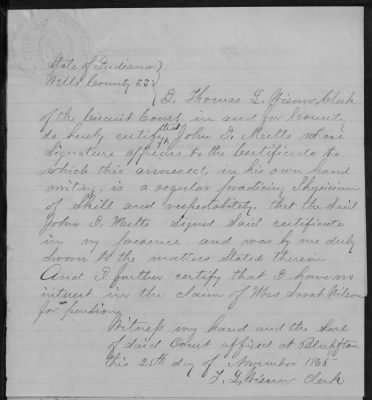 State of Indiana }
Wells County SS }
I, Thomas L. Wisner, Clerk
of the Circuit Court, in and for County
do hereby certify that John I. Metts whose
Signature appears to the Certificate to
which this annexed, in his own hand
writing, is a regular practicing Physician
of Skill and respectability, that the Said
John I. Metts Signed Said certificate
in my presence and was by me duly
Sworn to the matters Stated therein
And I further certify that I have no
interest in the claim of Mrs Sarah Wilson
for pension,
Witness my hand and the Seal
of Said Court affixed at Bluffton
this 25th day of November 1865
T. L. Wisner Clerk